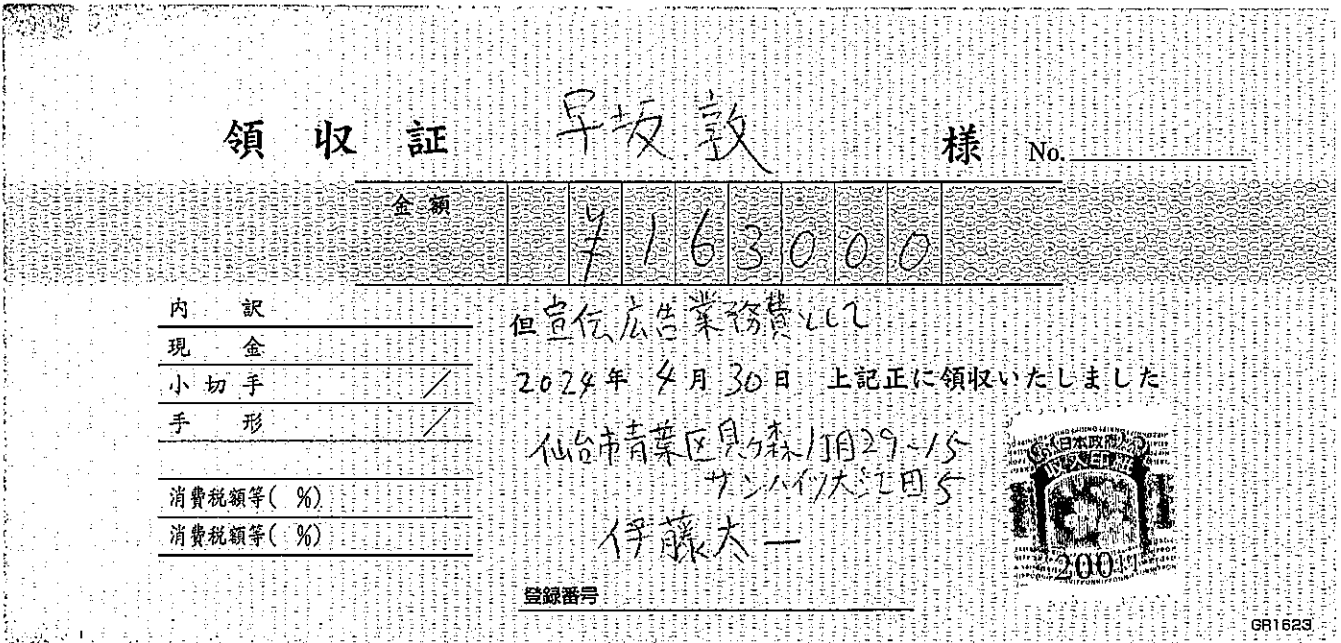 領収証 早坂敦 様 No.
金額 ¥163000
内訳
現金
小切手 /
手形 /
消費税額等( %)
消費税額等( %)
但 宣伝広告業務費として
2024年 4月 30日 上記正に領収いたしました
仙台市青葉区貝ヶ森1丁目29-15
サンハイツ大江田5
伊藤太一
日本政府
収入印紙
200円
登録番号
GR1623